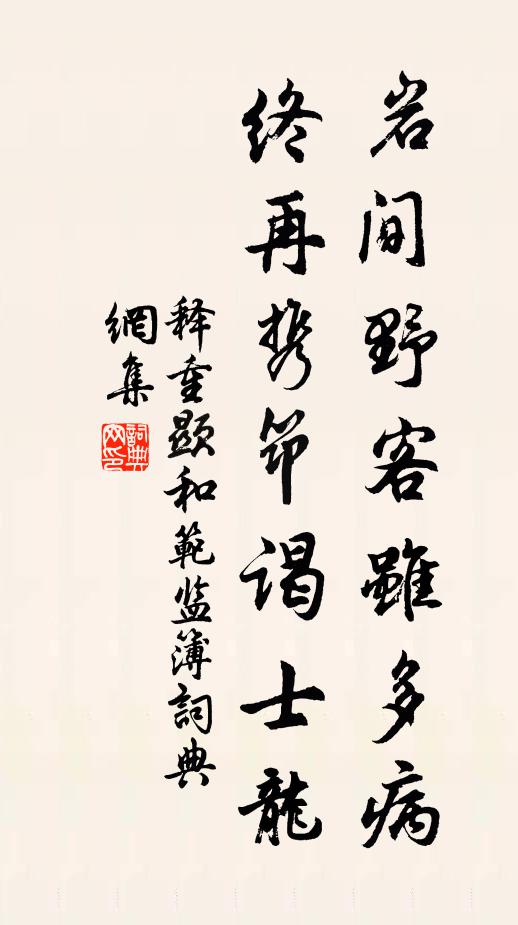 岩间野客雖多病
终再携筇谒士龍
释重顯和範监簿詞典
網集
詞典网印